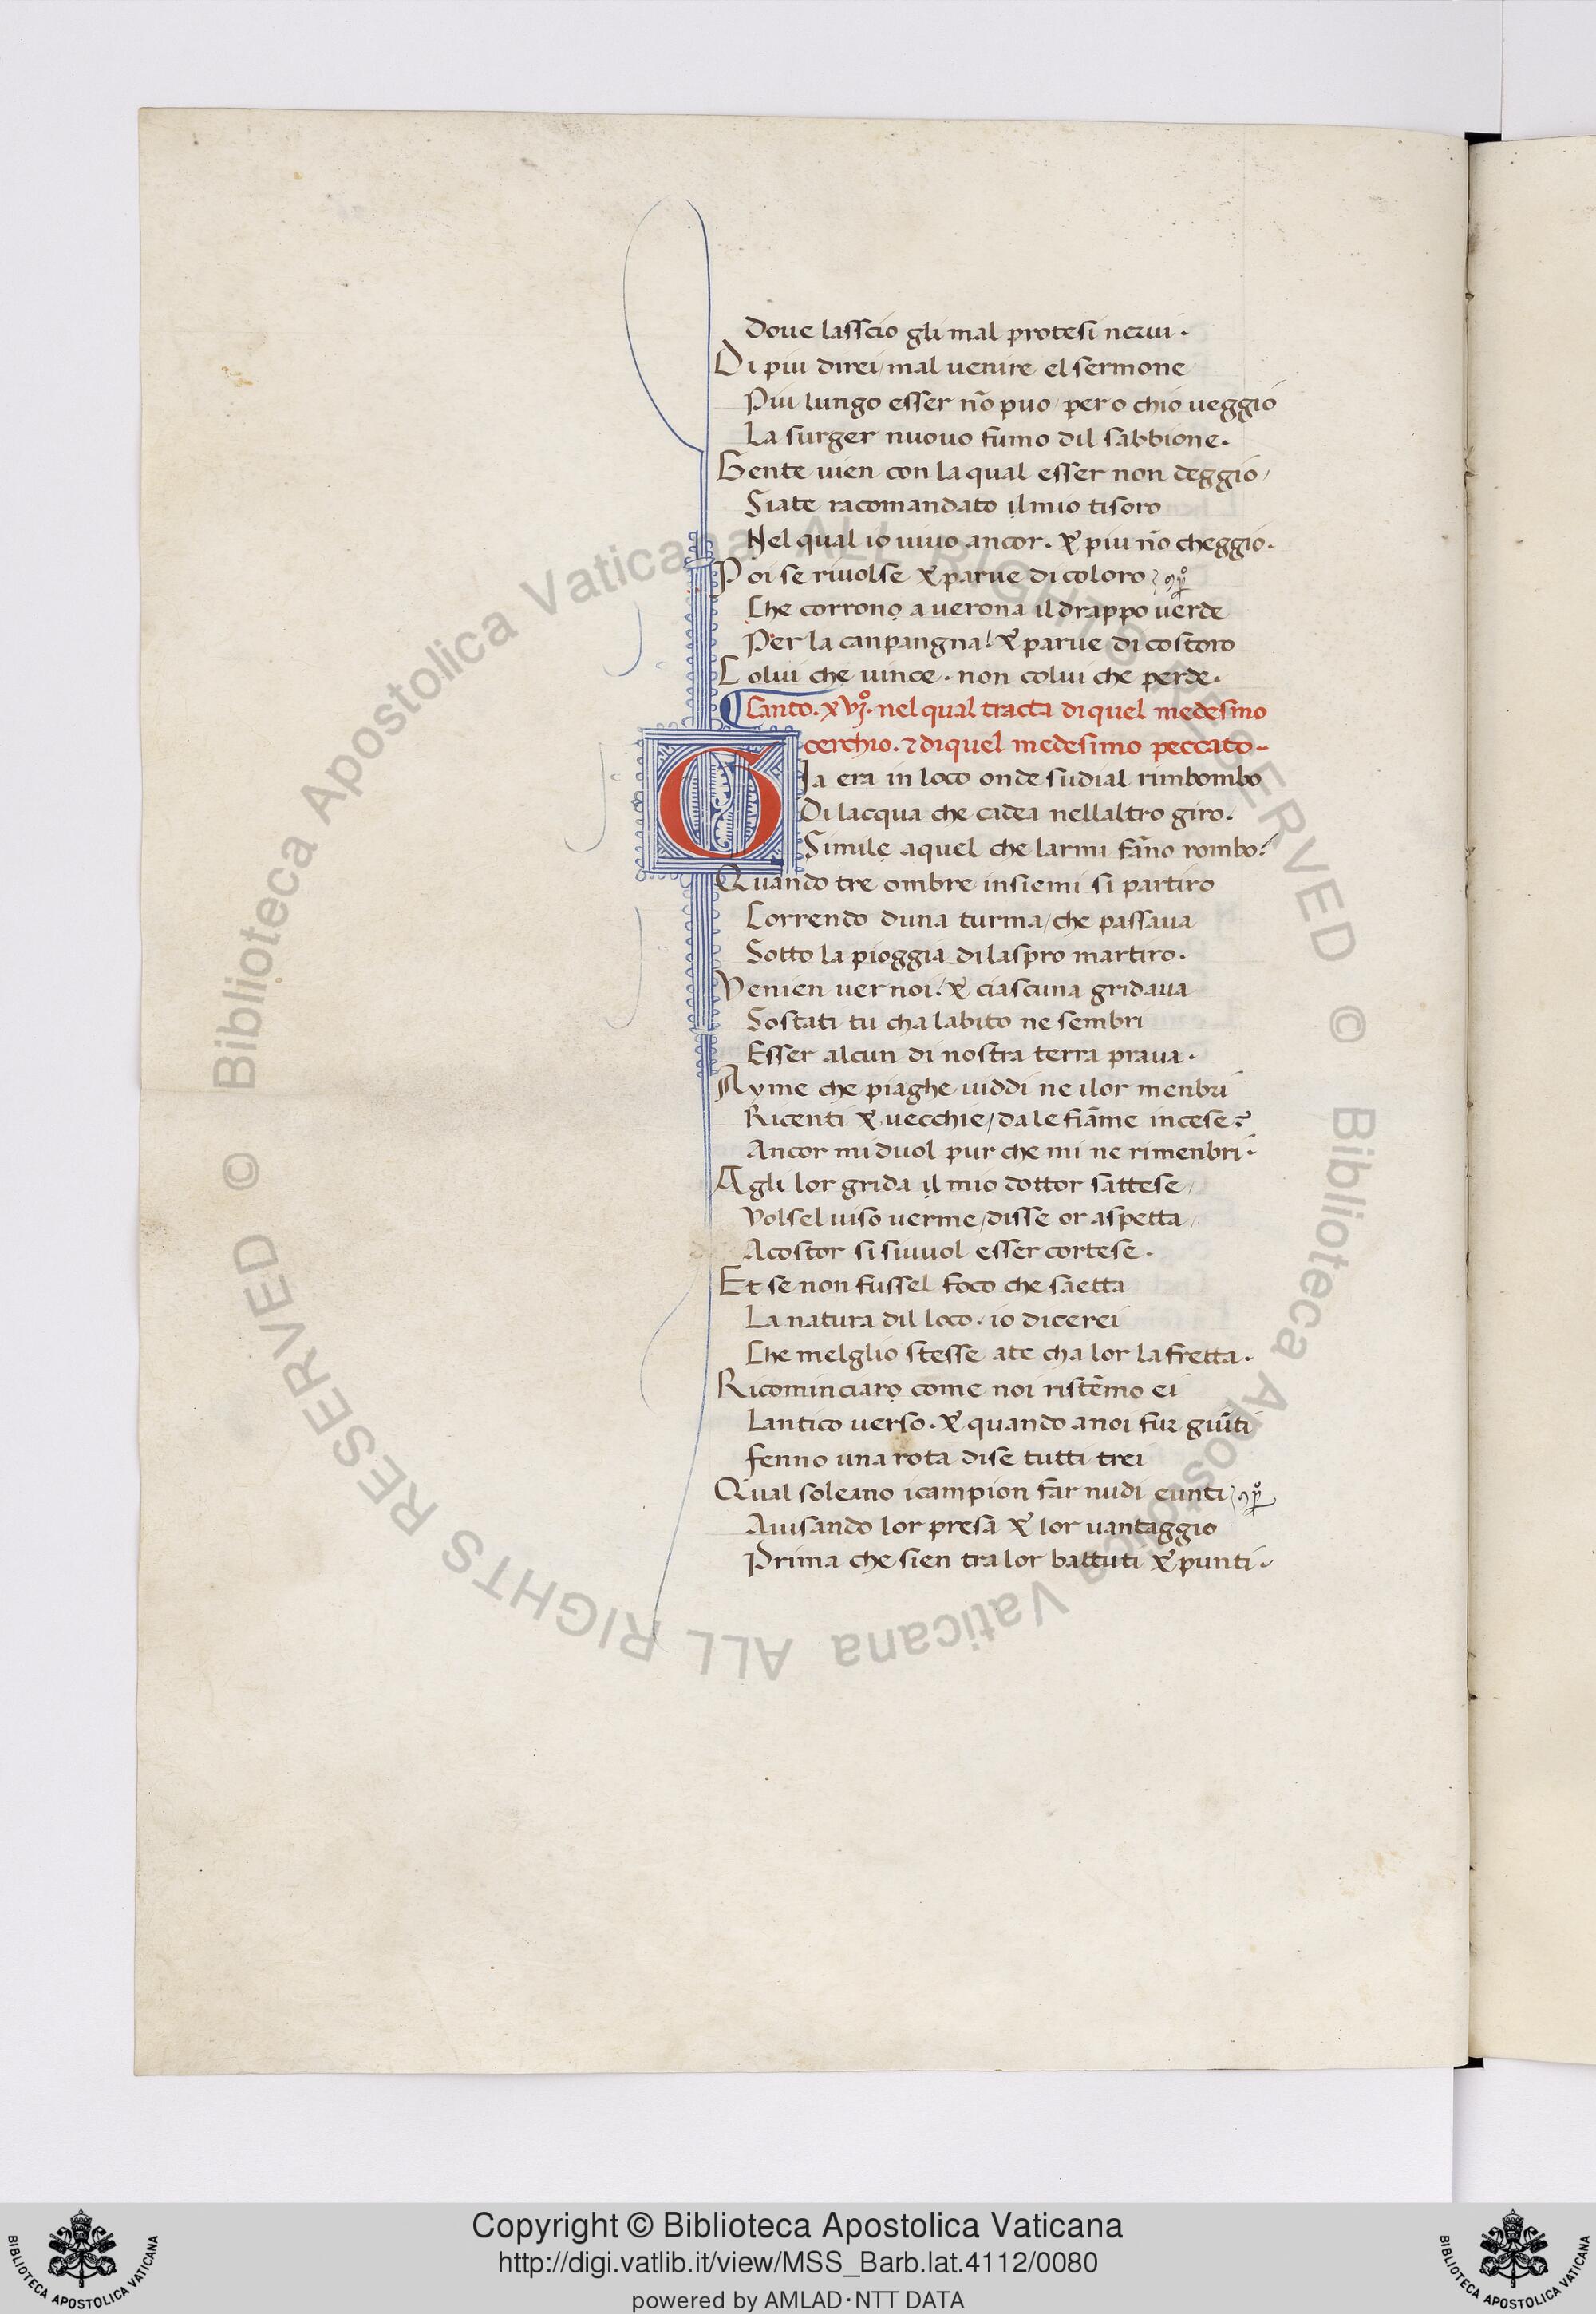 Doue lasscio gli mal protesi nerui.
Di piu direi/mal uenire el sermone
Piu lungo esser nō puo/pero chio ueggio
La surger nuouo fumo dil sabbione.
Gente uien con la qual esser non deggio/
Siate racomandato il mio tisoro
Nel qual io uiuo ancor. & piu nō cheggio.
Poi se riuolse & parue di coloro
Che corrono a uerona il drappo uerde
Per la canpangna! & parue di costoro
Colui che uince. non colui che perde.
Canto. xvjº. nel qual tracta di quel medesimo
cerchio. & di quel medesimo peccato.
Gia era in loco onde sudial rimbombo
Di lacqua che cadea nellaltro giro.
Simile aquel che larmi fāno rombo!
Quando tre ombre insiemi si partiro
Correndo duna turma/che passaua
Sotto la pioggia dilaspro martiro.
Venien uer noi! & ciascuna gridaua
Sostati tu cha labito ne sembri
Esser alcun di nostra terra praua.
Ayme che piaghe uiddi ne ilor menbri
Ricenti & uecchie/da le fiāme incese?
Ancor mi duol pur che mi ne rimenbri.
Agli lor grida il mio dottor sattese/
Volsel uiso uerme/disse or aspetta/
Acostor si siuuol esser cortese.
Et se non fussel foco che saetta
La natura dil loco. io dicerei
Che melglio stesse ate cha lor la fretta.
Ricominciaro come noi ristēmo ei
Lantico uerso. & quando anoi fur giūti
fenno una rota dise tutti trei
Qual soleano icampion far nudi eunti
Auisando lor presa & lor uantaggio
Prima che sien tra lor battuti & punti.
© Biblioteca Apostolica Vaticana ALL RIGHTS RESERVED
© Biblioteca Apostolica Vaticana ALL RIGHTS RESERVED
Copyright © Biblioteca Apostolica Vaticana
http://digi.vatlib.it/view/MSS_Barb.lat.4112/0080
powered by AMLAD·NTT DATA
BIBLIOTECA APOSTOLICA VATICANA
BIBLIOTECA APOSTOLICA VATICANA